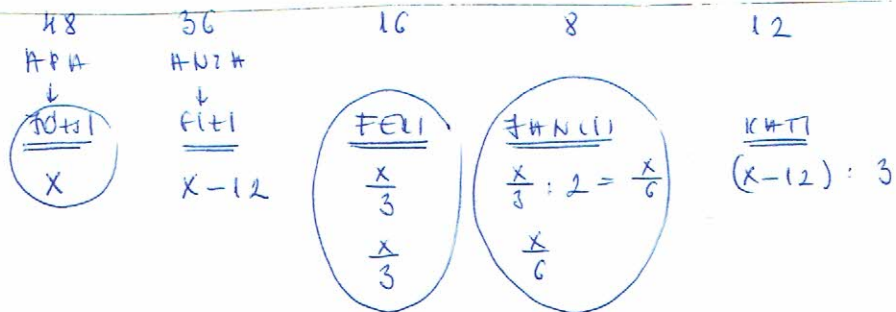 48 36 16 8 12
APA ANYA
↓ ↓
FERI JANCSI KATI
x x-12 x/3 x/3 : 2 = x/6 (x-12) : 3
x/3 x/6